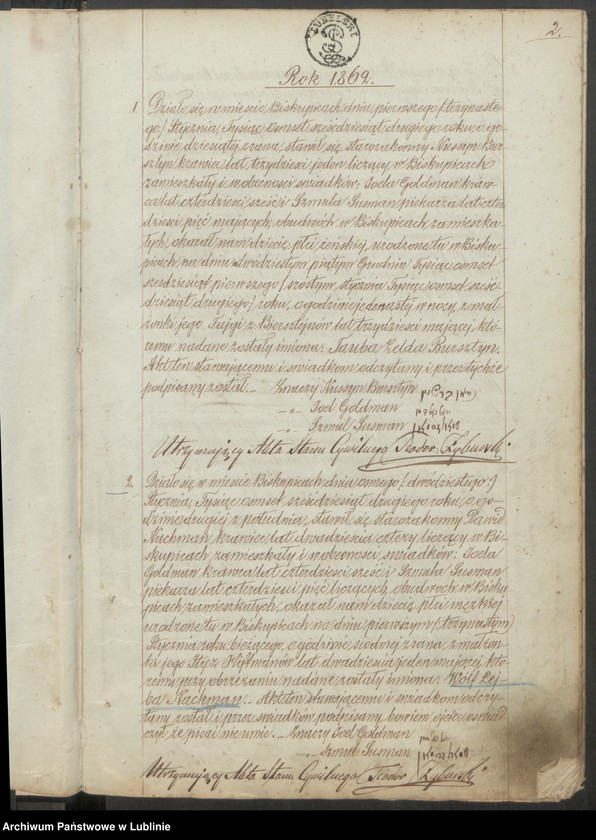 LUBELSKI
2.
Rok 1862.
1. Działo się w mieście Biskupicach dnia pierwszego /:trzynaste-
go:/ Stycznia, Tysiąc osmset sześćdziesiąt drugiego roku, o go-
dzinie dziesiątej zrana, stawił się starozakonny Nussyn Bur-
sztyn krawiec lat trzydzieści jeden liczący w Biskupicach
zamieszkały i w obecności świadków: Joela Goldman kraw-
ca lat czterdzieści sześć i Szmula Susman piekarza lat czter-
dzieści pięć mających, obudwóch w Biskupicach zamieszka-
łych, okazał nam dziecię płci żeńskiej, urodzone tu w Bisku-
picach na dniu dwódziestym piątym Grudnia Tysiąc osmset
sześdziesiąt pierwszego /:szóstym stycznia Tysiąc osmset sześć-
dziesiąt drugiego:/ roku, o godzinie jedenastej w nocy, z mał-
żonki jego Fajgi z Bersztejnów lat trzydzieści mającej, któ-
remu nadane zostały imiona: Tauba Zelda Bursztyn.
Akt ten stawającemu i świadkom odczytany i przez tychże
podpisany został. – Znaczy Nussyn Bursztyn
-„- Joel Goldman
-„- Szmul Susman
Utrzymujący Akta Stanu Cywilnego Teodor
2. Działo się w mieście Biskupicach dnia osmego /:dwódziestego:/
Stycznia, Tysiąc osmset sześćdziesiąt drugiego roku, o go-
dzinie drugiej z południa, stawił się starozakonny Dawid
Nachman, krawiec lat dwadzieścia cztery liczący w Bi-
skupicach zamieszkały i w obecności świadków: Joela
Goldman krawca lat czterdzieści sześć i Szmula Susman
piekarza lat czterdzieści pięć liczących, obudwóch w Bisku-
picach zamieszkałych, okazał nam dziecię płci męzkiej
urodzone tu w Biskupicach na dniu pierwszym /:trzynastym:/
Stycznia roku bieżącego, o godzinie siódmej z rana, z małżon-
ki jego z lat dwadzieścia jeden mającej, któ-
remu przy obrzezaniu nadane zostały imiona: Wolf Lej-
ba Nachman. – Akt ten stawającemu i świadkom odczy-
tany został i przez świadków podpisany, bowiem ojciec oświad-
czył że pisać nie umie. – Znaczy Joel Goldman
-„- Szmul Susman
Utrzymujący Akta Stanu Cywilnego Teodor
Archiwum Państwowe w Lublinie